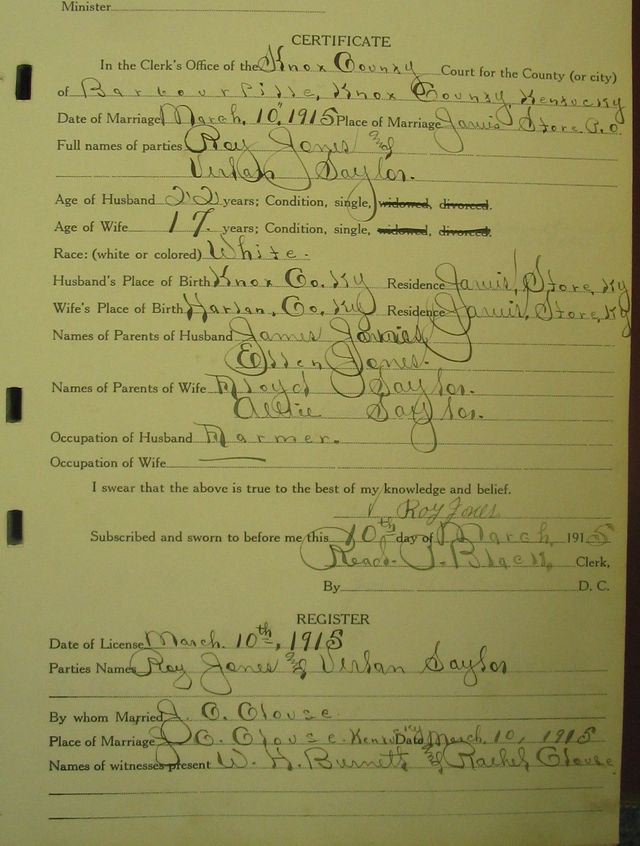 Minister
CERTIFICATE
In the Clerk's Office of the Knox County Court for the County (or city)
of Barbourville, Knox County, Kentucky
Date of Marriage March, 10", 1915 Place of Marriage Jarvis Store P.O.
Full names of parties Roy Jones and
Virlan Saylor.
Age of Husband 22 years; Condition, single, widowed, divorced.
Age of Wife 17. years; Condition, single, widowed, divorced.
Race: (white or colored) White.
Husband's Place of Birth Knox Co. Ky Residence Jarvis, Store, Ky
Wife's Place of Birth Harlan, Co, Ky Residence Jarvis, Store, Ky
Names of Parents of Husband James Jones,
Ellen Jones.
Names of Parents of Wife Floyd Saylor.
Allie Saylor.
Occupation of Husband Farmer.
Occupation of Wife
I swear that the above is true to the best of my knowledge and belief.
Roy Jones
Subscribed and sworn to before me this 10th day of March, 1915
Read. P. Black, Clerk,
By D. C.
REGISTER
Date of License March. 10th, 1915
Parties Names Roy Jones and Virlan Saylor
By whom Married J. C. Clouse.
Place of Marriage J. C. Clouse. Kentucky Date March, 10, 1915
Names of witnesses present W. H. Burnett and Rachel Clouse